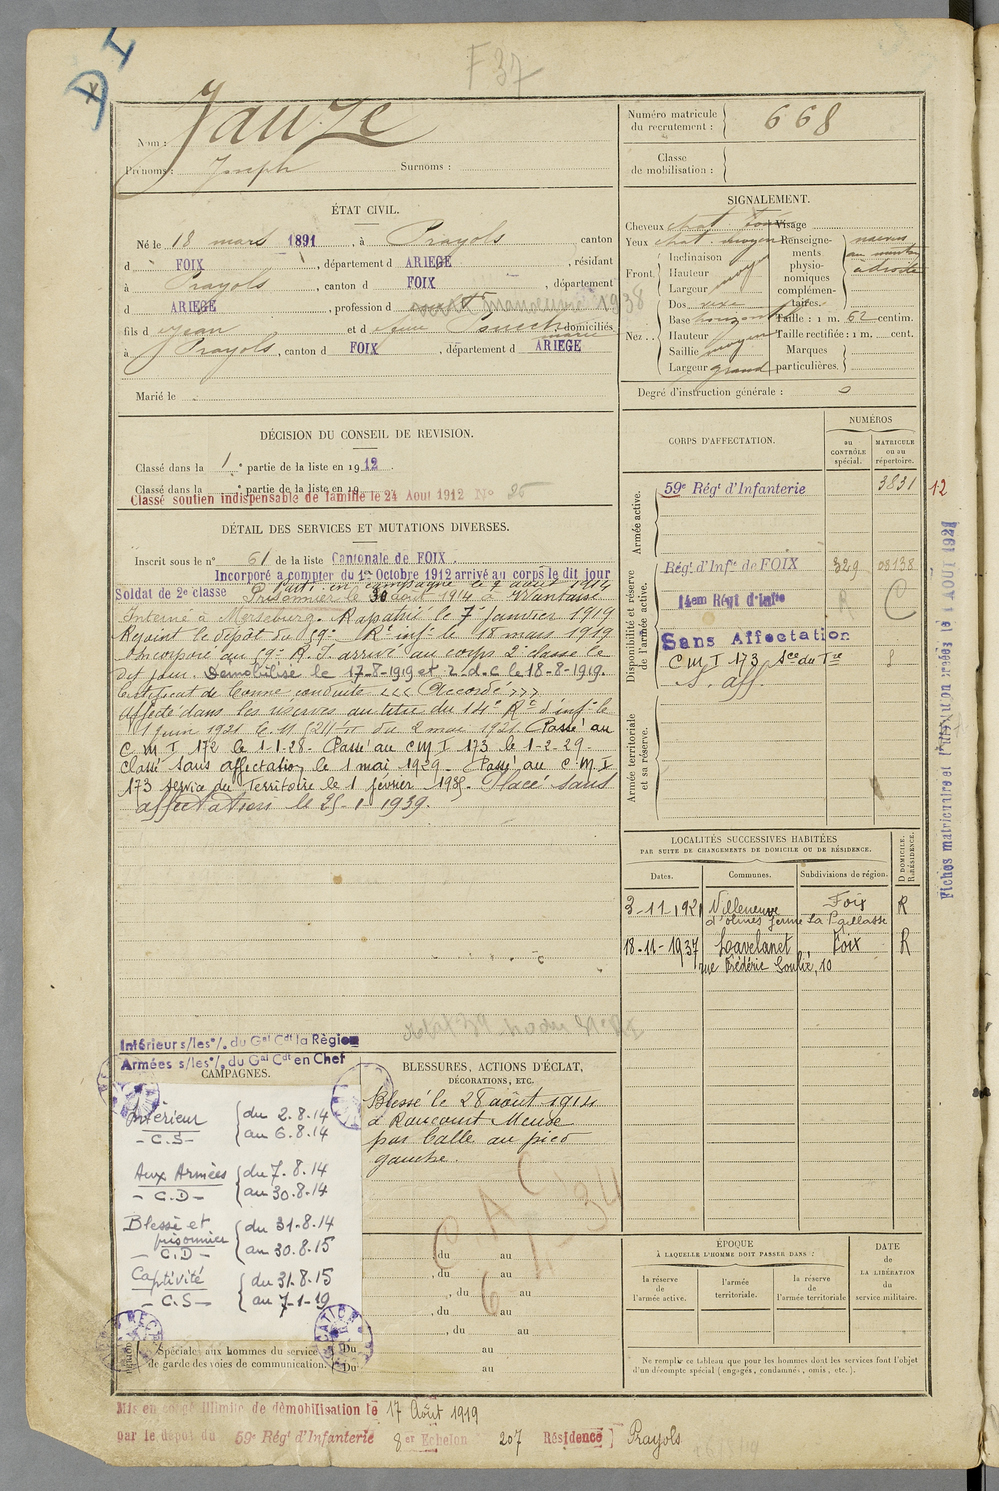 D I
F 37
Nom : Jauze
Prénoms : Joseph Surnoms :
Numéro matricule du recrutement : 668
Classe de mobilisation :
ÉTAT CIVIL.
Né le 18 mars 1891, à Prayols, canton
d FOIX, département d ARIEGE, résidant
à Prayols, canton d FOIX, département
d ARIEGE, profession d manoeuvre 1938
fils d Jean et d domiciliés
à Prayols, canton d FOIX, département d ARIEGE
Marié le
SIGNALEMENT.
Cheveux chat. Visage
Yeux chat. moyen Renseigne-
ments
physio-
nomiques
complémen-
taires.
naevus
au menton
à droite
Front. Inclinaison
Hauteur moy
Largeur
Nez.. Dos vexe
Base horizontale Taille : 1 m. 62 centim.
Hauteur moyen Taille rectifiée : 1 m. cent.
Saillie moyen Marques
Largeur grand particulières.
Degré d'instruction générale : 2
DÉCISION DU CONSEIL DE REVISION.
Classé dans la 1e partie de la liste en 1912.
Classé dans la e partie de la liste en 19
Classé soutien indispensable de famille le 24 Aout 1912 N° 25
DÉTAIL DES SERVICES ET MUTATIONS DIVERSES.
Inscrit sous le n° 61 de la liste Cantonale de FOIX.
Incorporé a compter du 1er Octobre 1912 arrivé au corps le dit jour
Soldat de 2e classe Parti en campagne le 7 août 1914
Prisonnier le 30 août 1914 à
Interné à Merseburg. Rapatrié le 7 Janvier 1919
Rejoint le dépôt du 59e Rt infie le 18 mars 1919
Incorporé au 59e R.I. arrivé au corps 2e classe le
dit jour. Démobilisé le 17-8-1919 et r.d.c le 18-8-1919.
Certificat de bonne conduite <<< Accordé >>>
Affecté dans les réserves au titre du 14e Rt d'infie le
1 juin 1921 du 2 mai 1921. Passé au
C M I 172 le 1-1-28. Passé au C M I 173 le 1-2-29.
Classé sans affectation le 1 mai 1929. Passé au C.M.I
173 service du Territoire le 1 février 1935. Placé sans
affectation le 25-1-1939.
CORPS D'AFFECTATION.
NUMÉROS
au CONTRÔLE spécial.
MATRICULE ou au répertoire.
Armée active.
59e Régt d'Infanterie 3831 12
Disponibilité et réserve de l'armée active.
Régt d'Infie de FOIX 329 08138
14em Régt d'Infie R C
Sans Affectation
C M I 173 Sce du Tre 8
S. aff.
Armée territoriale et sa réserve.
LOCALITÉS SUCCESSIVES HABITÉES
PAR SUITE DE CHANGEMENTS DE DOMICILE OU DE RÉSIDENCE.
Dates. Communes. Subdivisions de région. D DOMICILE. R RÉSIDENCE.
3-11-1921 Villeneuve Foix R
d'olmes ferme La Pgillasse
18-11-1937 Lavelanet Foix R
rue Frédéric Soulié, 10
Intérieur s/les o/. du Gal Cdt la Région
Armées s/les o/. du Gal Cdt en Chef
CAMPAGNES.
Intérieur { du 2.8.14
- C.S - au 6.8.14
Aux Armées { du 7.8.14
- C.D - au 30.8.14
Blessé et { du 31.8.14
prisonnier
- C.D - au 30.8.15
Captivité { du 31.8.15
- C.S - au 7-1-19
Spéciale aux hommes du service
de garde des voies de communication.
Du au
Du au
BLESSURES, ACTIONS D'ÉCLAT,
DÉCORATIONS, ETC.
Blessé le 28 août 1914
à Raucourt Meuse
par balle au pied
gauche.
C.A.C
34
6
, du au
, du au
, du au
, du au
, du au
ÉPOQUE
À LAQUELLE L'HOMME DOIT PASSER DANS :
la réserve de l'armée active.
l'armée territoriale.
la réserve de l'armée territoriale
DATE de LA LIBÉRATION du service militaire.
Ne remplir ce tableau que pour les hommes dont les services font l'objet
d'un décompte spécial (engagés, condamnés, omis, etc.).
Mis en congé illimité de démobilisation le 17 Août 1919
par le dépôt du 59e Régt d'Infanterie 8e Echelon 207 Résidence Prayols